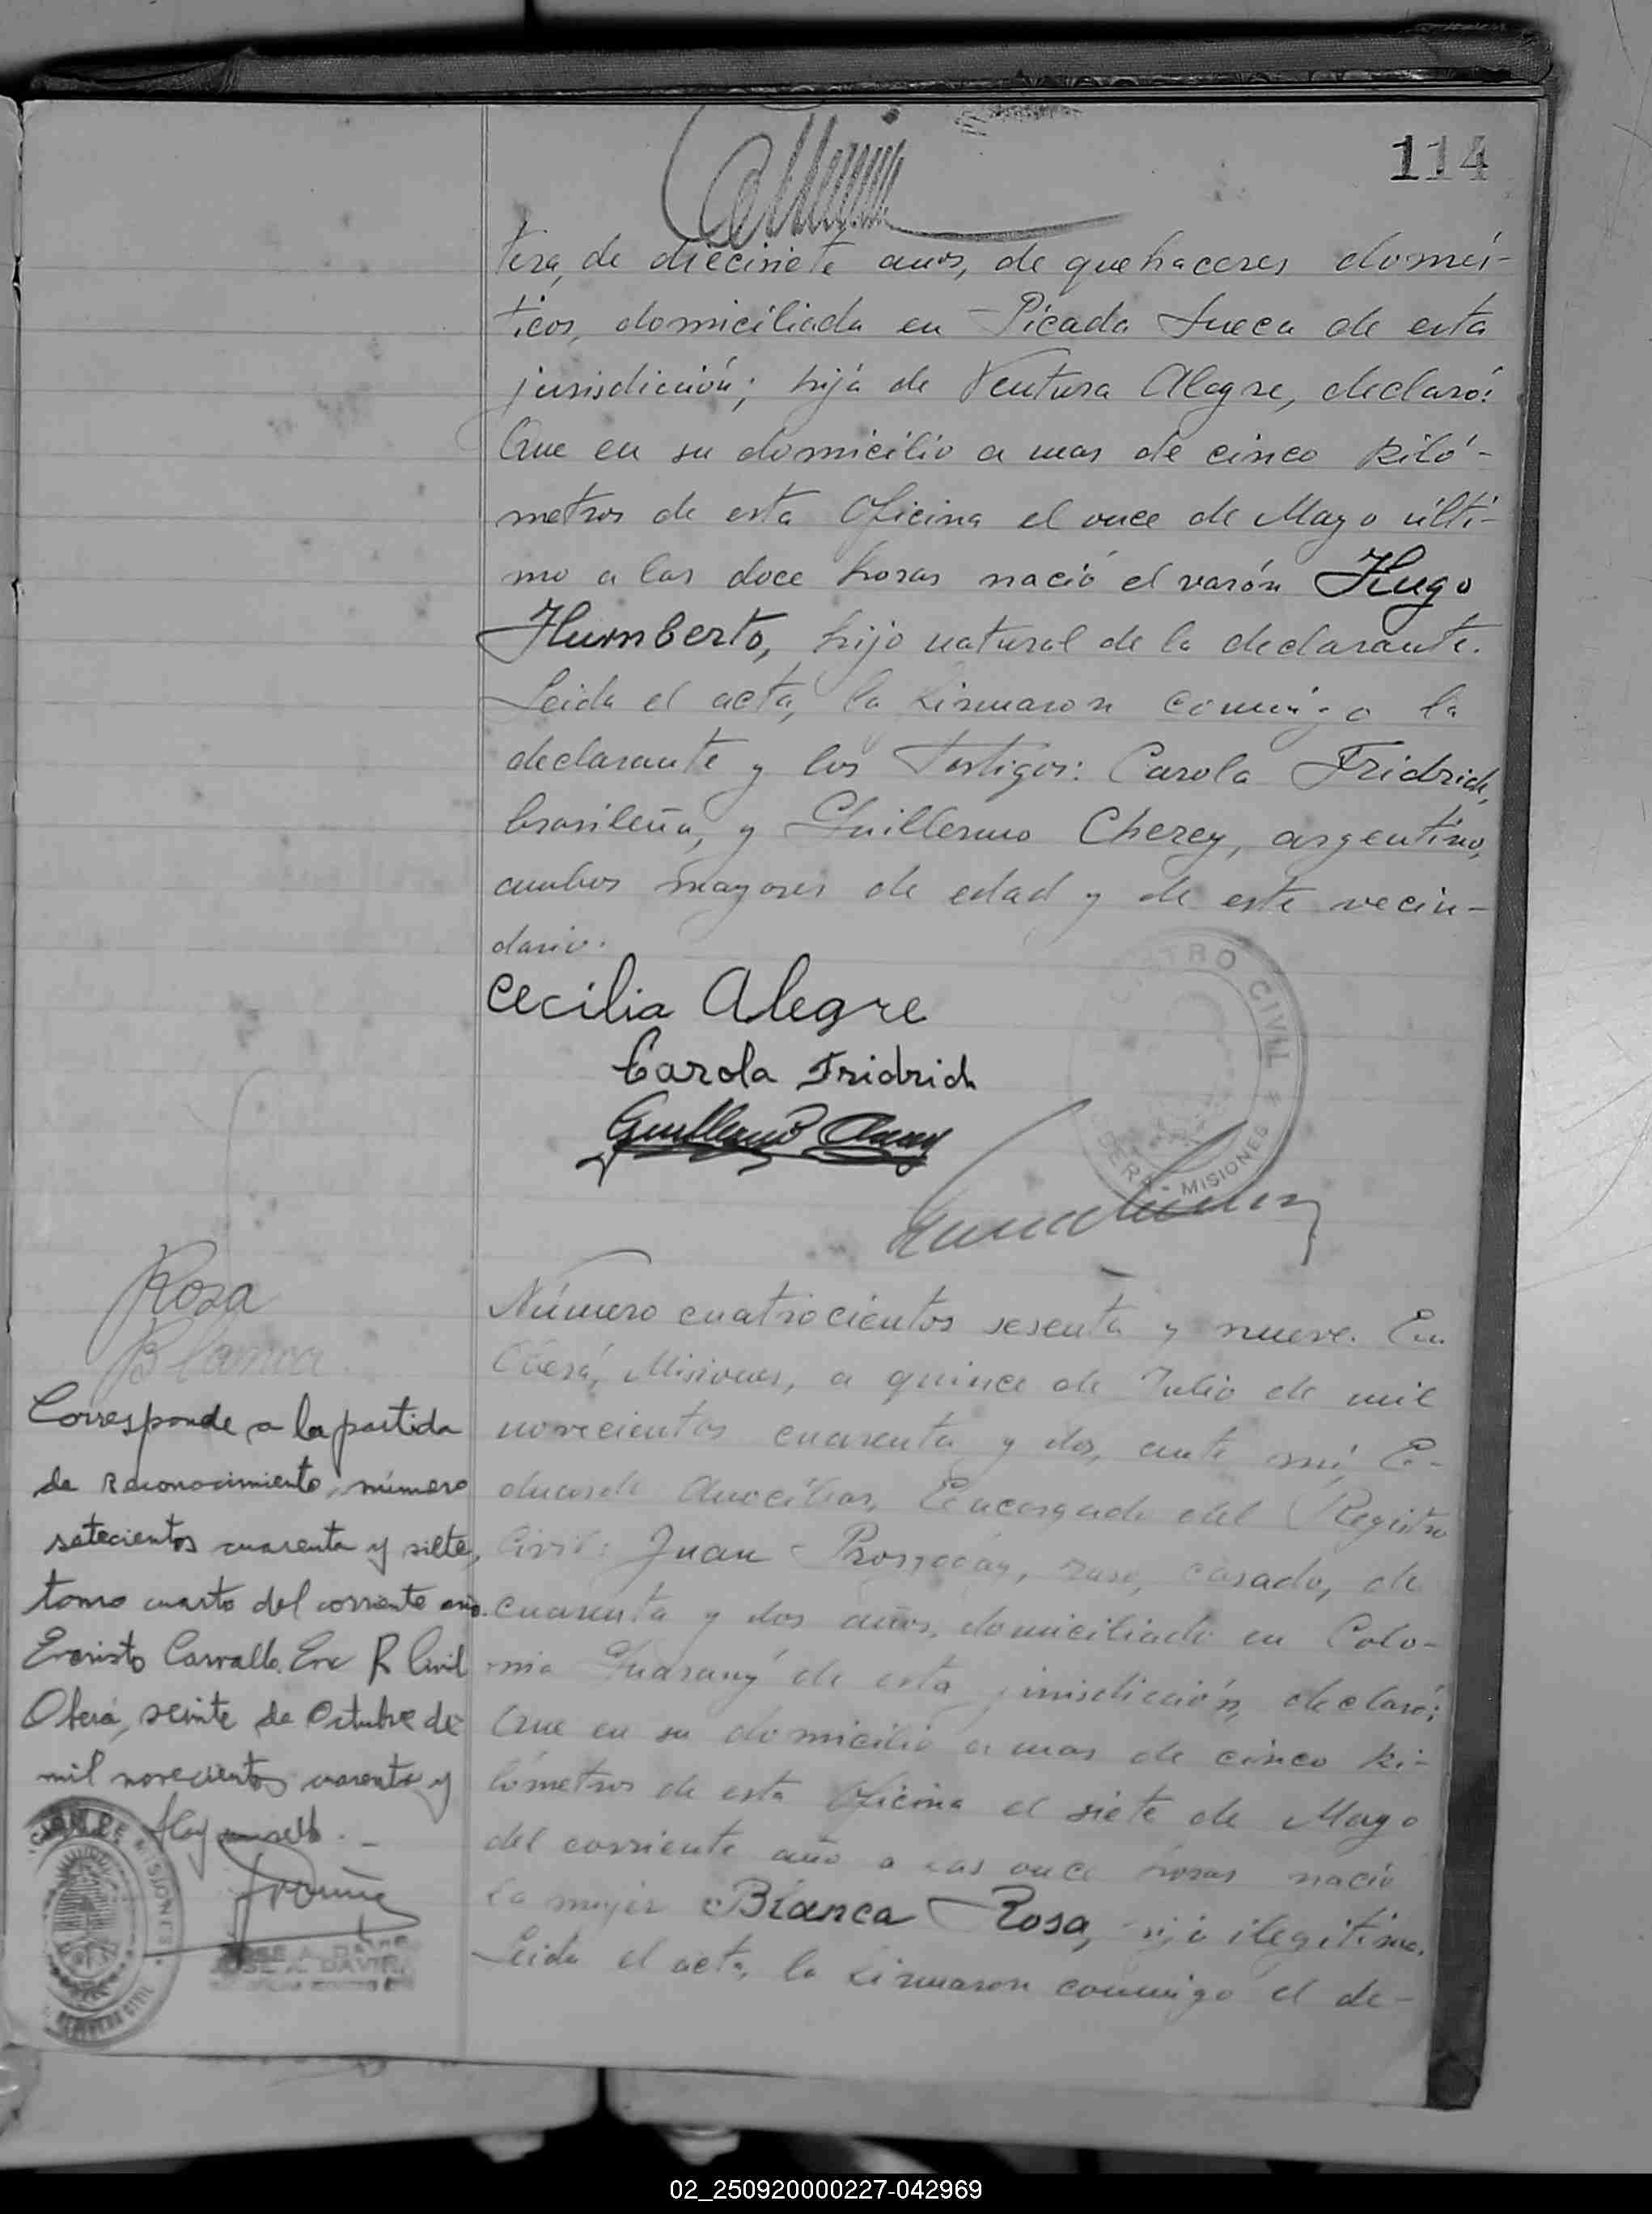 114
tera, de diecisiete años, de quehaceres domés-
ticos, domiciliada en Picada Sueca de esta
jurisdicción; hija de Ventura Alegre, declaró:
Que en su domicilio a mas de cinco kiló-
metros de esta Oficina el once de Mayo últi-
mo a las doce horas nació el varón Hugo
Humberto, hijo natural de la declarante.
Leida el acta, la firmaron conmigo la
declarante y los Testigos: Carola Fridrich,
brasileña, y Guillermo Cherey, argentino,
ambos mayores de edad y de este vecin-
dario.
Cecilia Alegre
Carola Fridrich
Guillermo
CIVIL
MISIONES
Rosa
Blanca
Corresponde a la partida
de reconocimiento, número
setecientos cuarenta y siete,
tomo cuarto del corriente año.
Evaristo Carvallo. Enc R Civil
Oberá, veinte de Octubre de
mil novecientos cuarenta y
JOSE A. DAVIÑA
Número cuatrocientos sesenta y nueve. En
Oberá, Misiones, a quince de Julio de mil
novecientos cuarenta y dos, ante mí, E-
duardo Encargado del Registro
Civil: Juan ruso, casado, de
cuarenta y dos años, domiciliado en Colo-
nia Guaraný de esta jurisdicción, declaró:
Que en su domicilio a mas de cinco ki-
lómetros de esta Oficina el siete de Mayo
del corriente año a las once horas nació
la mujer Blanca Rosa, hija ilegítima.
Leida el acta, la firmaron conmigo el de-
02_250920000227-042969